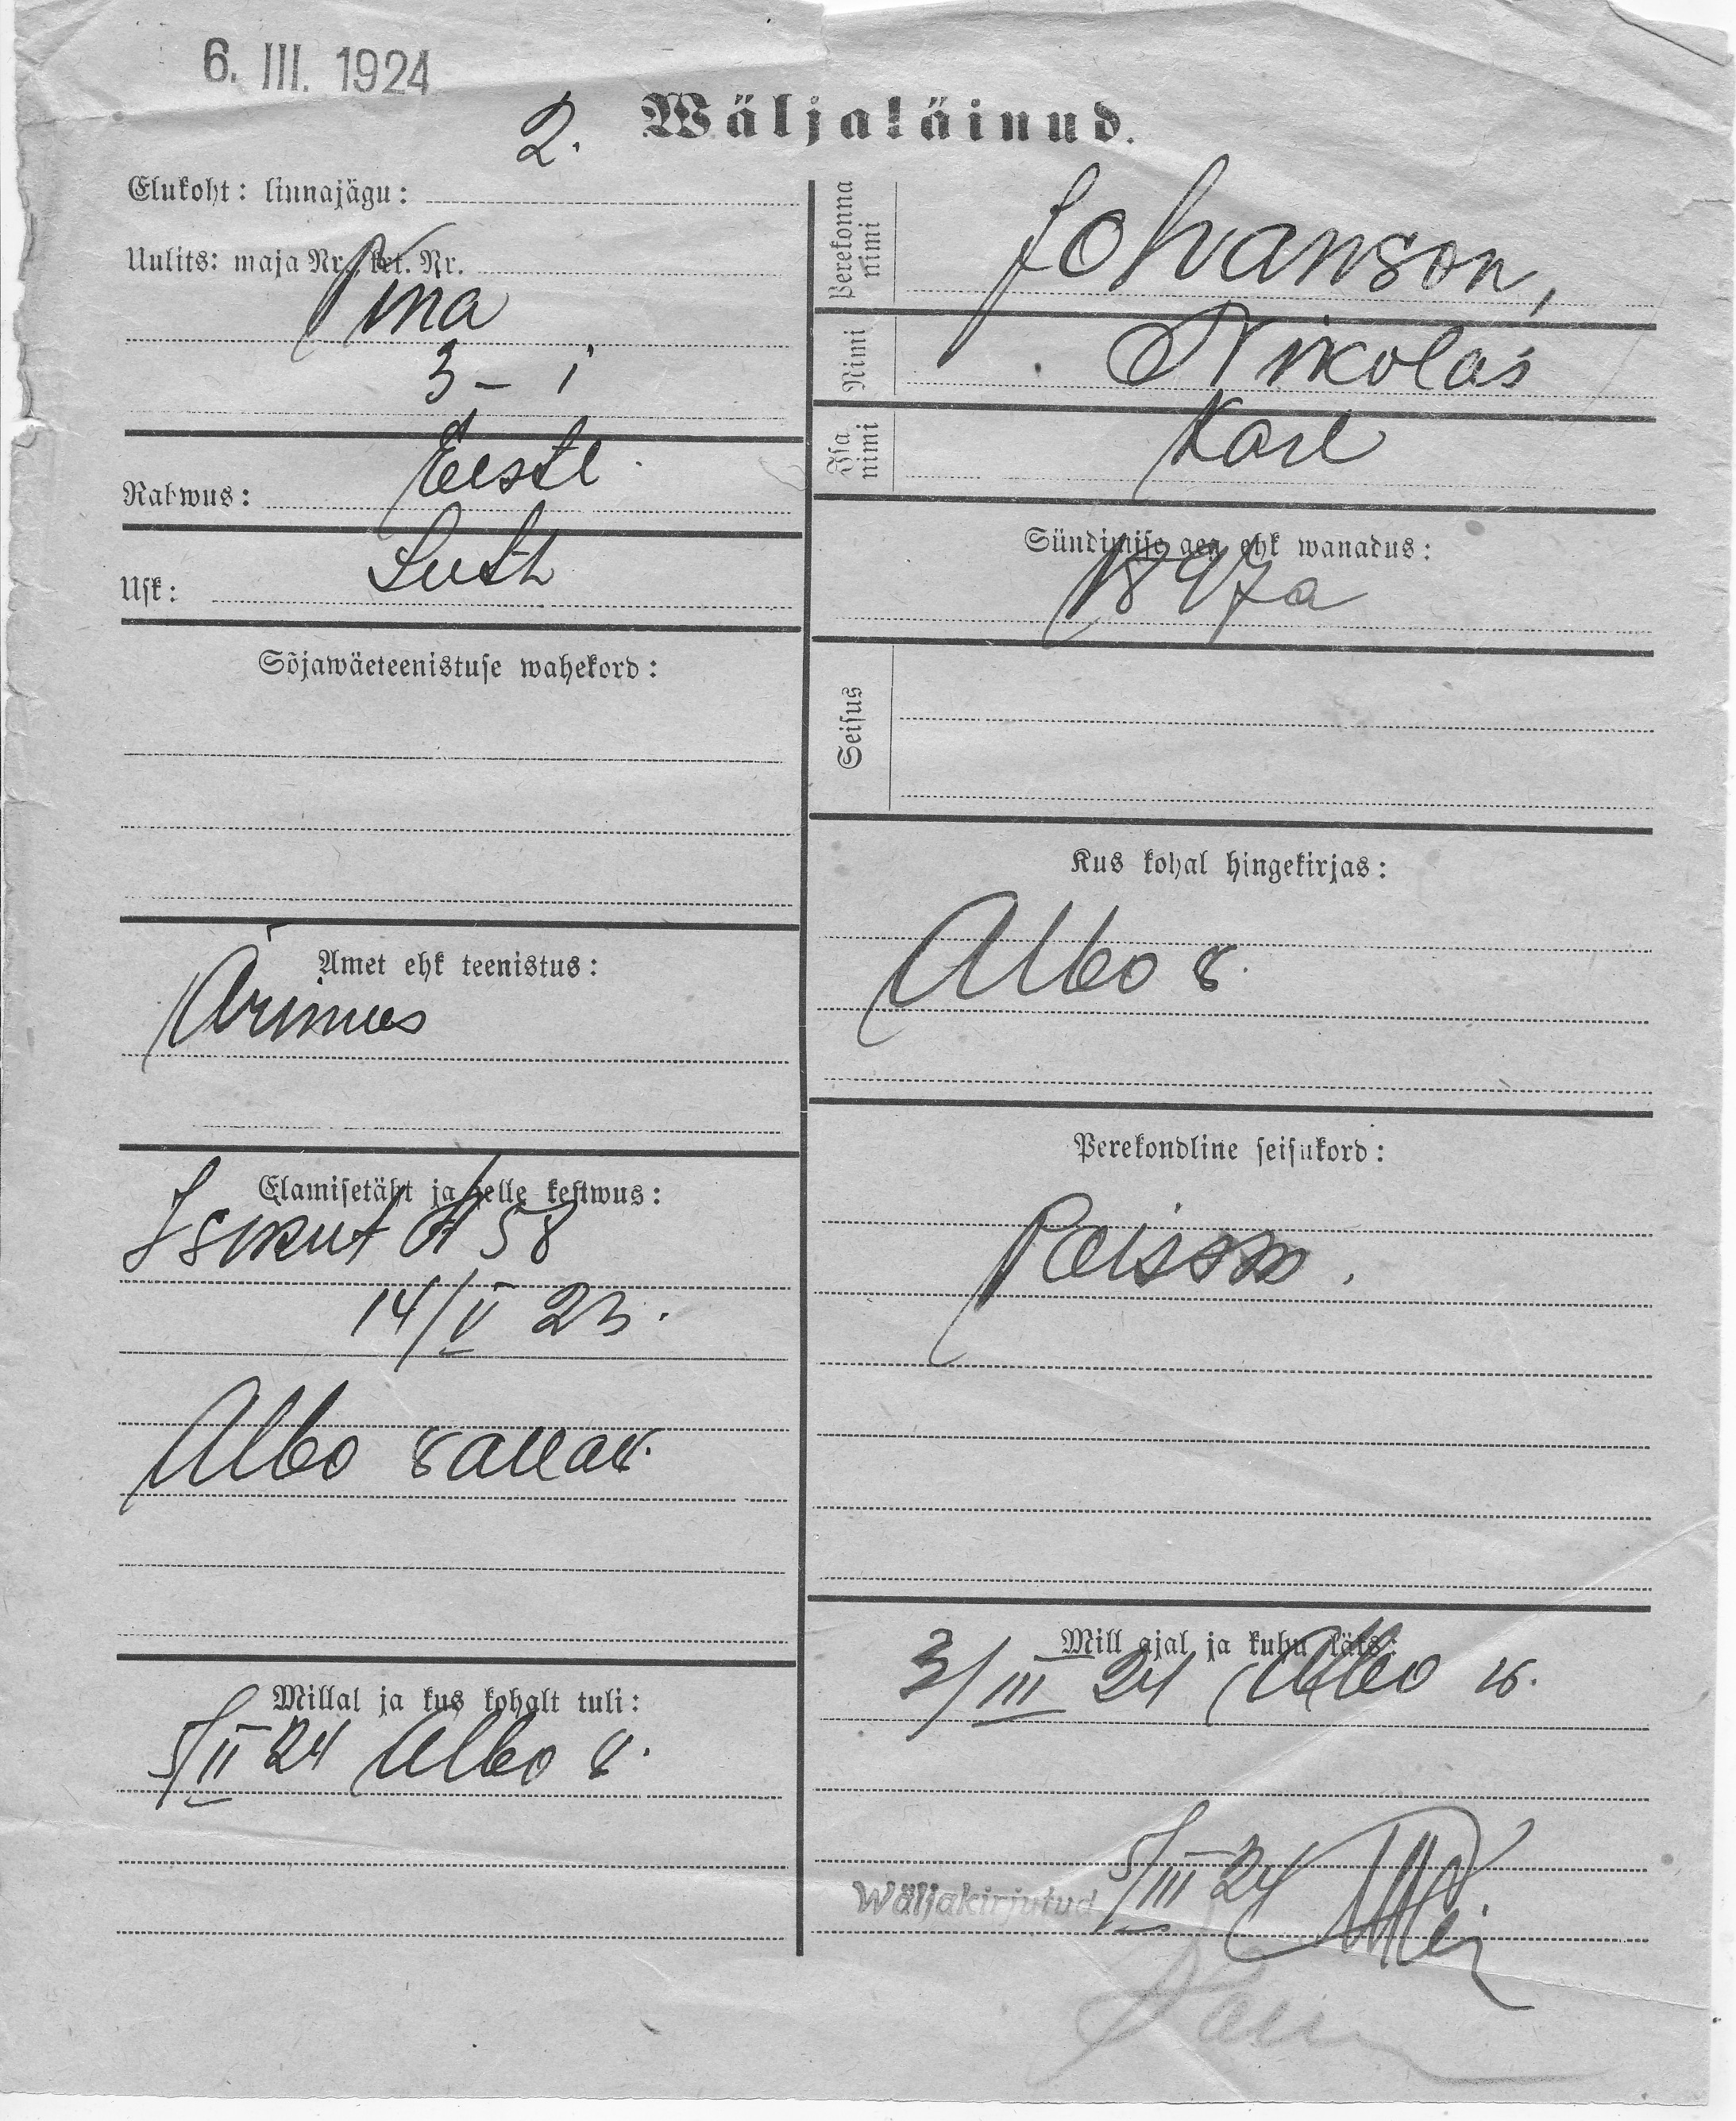 6. III. 1924
2. Wäljaläinud.
Elukoht: linnajägu:
Uulits: maja Nr., krt. Nr.
3 – 1
Rahwus: Eesti
Usk: Luth
Sõjawäeteenistuse wahekord:
Amet ehk teenistus:
Ärimees
Elamisetäht ja selle kestwus:
Isikut A 58
14/V 23.
Albo vallav.
Millal ja kus kohalt tuli:
5/II 24 Albo v.
Perekonna nimi
Johanson,
Nimi
Nikolas
Isa nimi
Karl
Sündimise aeg ehk wanadus:
1897a
Seisus
Kus kohal hingekirjas:
Albo v.
Perekondline seisukord:
Poissm.
Mill ajal ja kuhu läks:
3/III 24 Albo v.
Wäljakirjutud 5/III 24